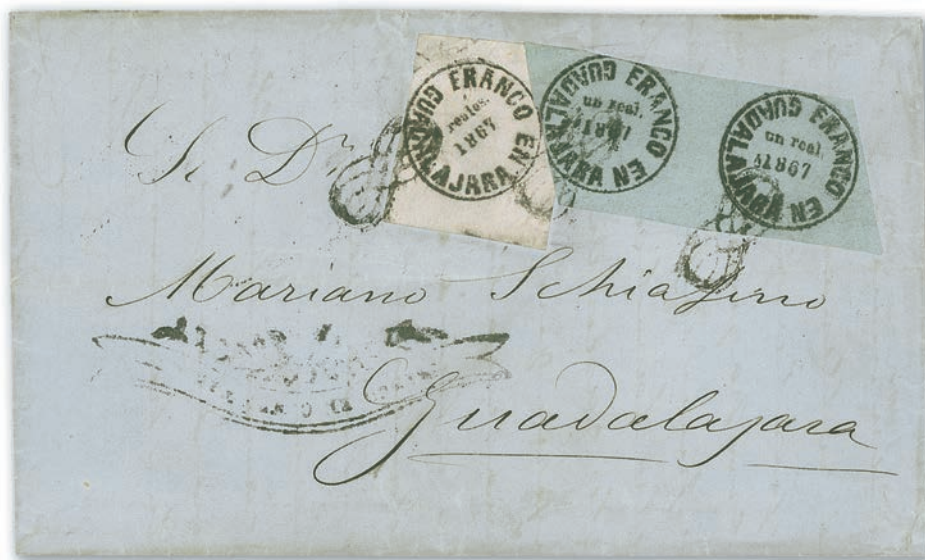 FRANCO EN GUADALAJARA
reales.
1867
FRANCO EN GUADALAJARA
un real.
1867
FRANCO EN GUADALAJARA
un real.
1867
Sr. Dn.
Mariano Schiafino
Guadalajara